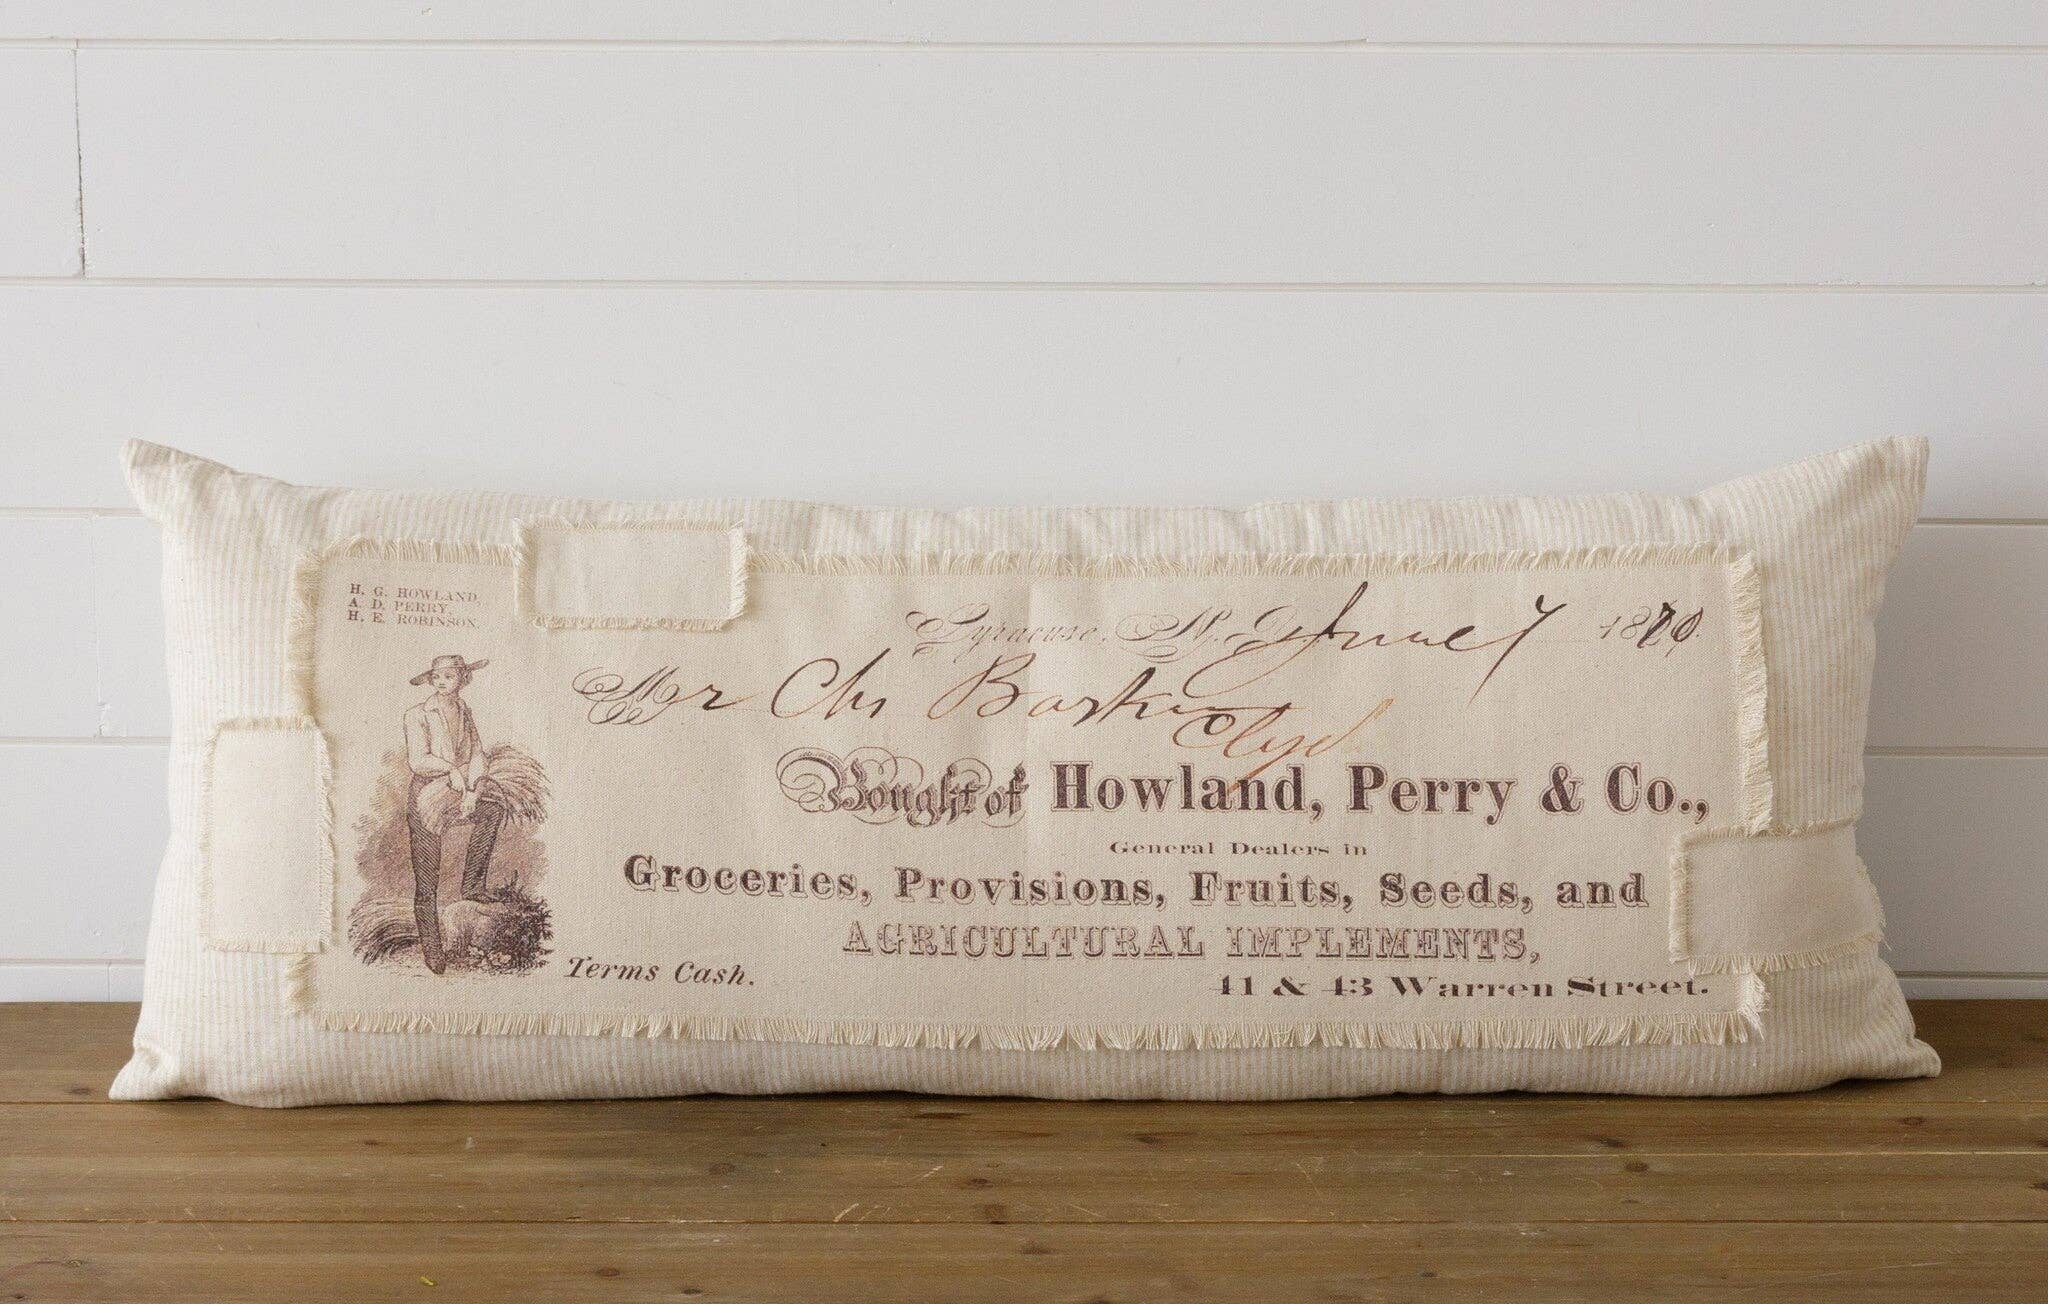 H. G. HOWLAND,
A. D. PERRY,
H. E. ROBINSON.
Syracuse, N. Y. June 7 1870.
Mr Chs
Clyde
Bought of Howland, Perry & Co.,
General Dealers in
Groceries, Provisions, Fruits, Seeds, and
AGRICULTURAL IMPLEMENTS,
Terms Cash.
41 & 43 Warren Street.